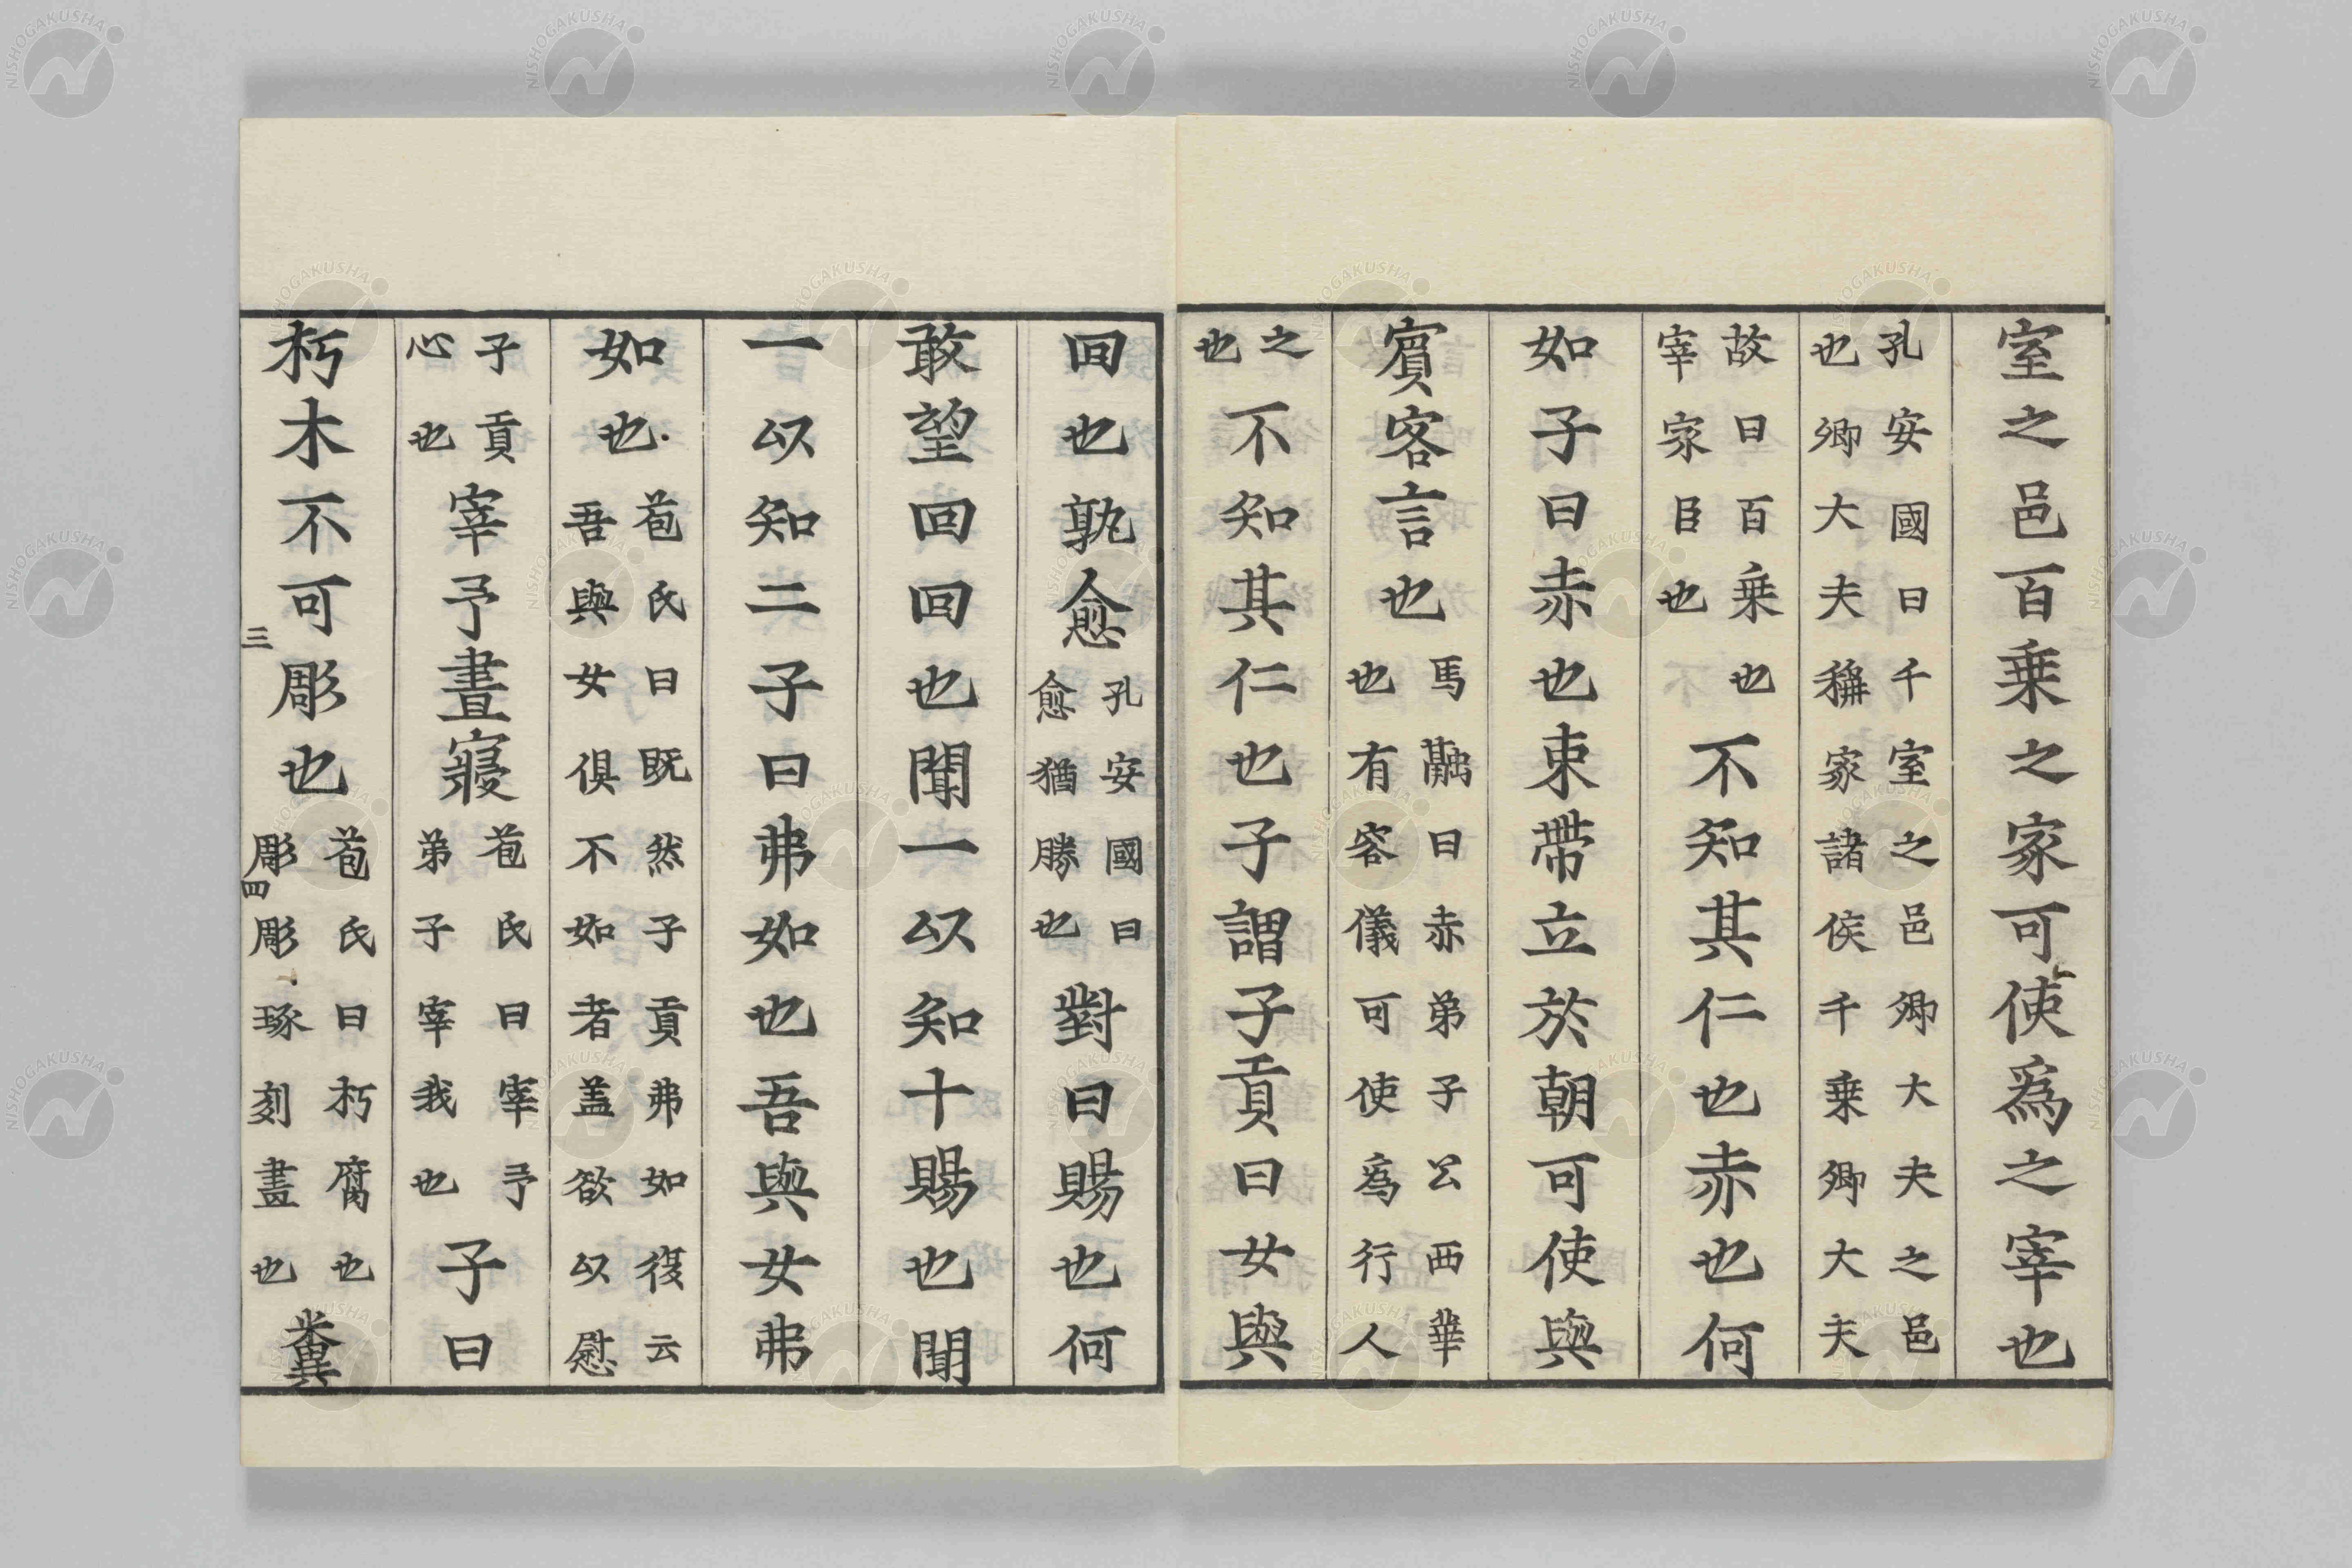 室之邑百乗之家可使爲之宰也
孔安國曰千室之邑卿大夫之邑
也卿大夫稱家諸侯千乗卿大夫
故曰百乗也
宰家臣也
不知其仁也赤也何
如子曰赤也束帶立於朝可使與
賓客言也
馬融曰赤弟子公西華
也有容儀可使為行人
之
也
不知其仁也子謂子貢曰女與
回也孰愈
孔安國曰
愈猶勝也
對曰賜也何
敢望回回也聞一以知十賜也聞
一以知二子曰弗如也吾與女弗
如也
苞氏曰既然子貢弗如復云
吾與女俱不如者盖欲以慰
子貢
心也
宰予晝寢
苞氏曰宰予
弟子宰我也
子曰
朽木不可彫也
苞氏曰朽腐也
彫彫琢刻畫也
糞
三
四
NISHOGAKUSHA